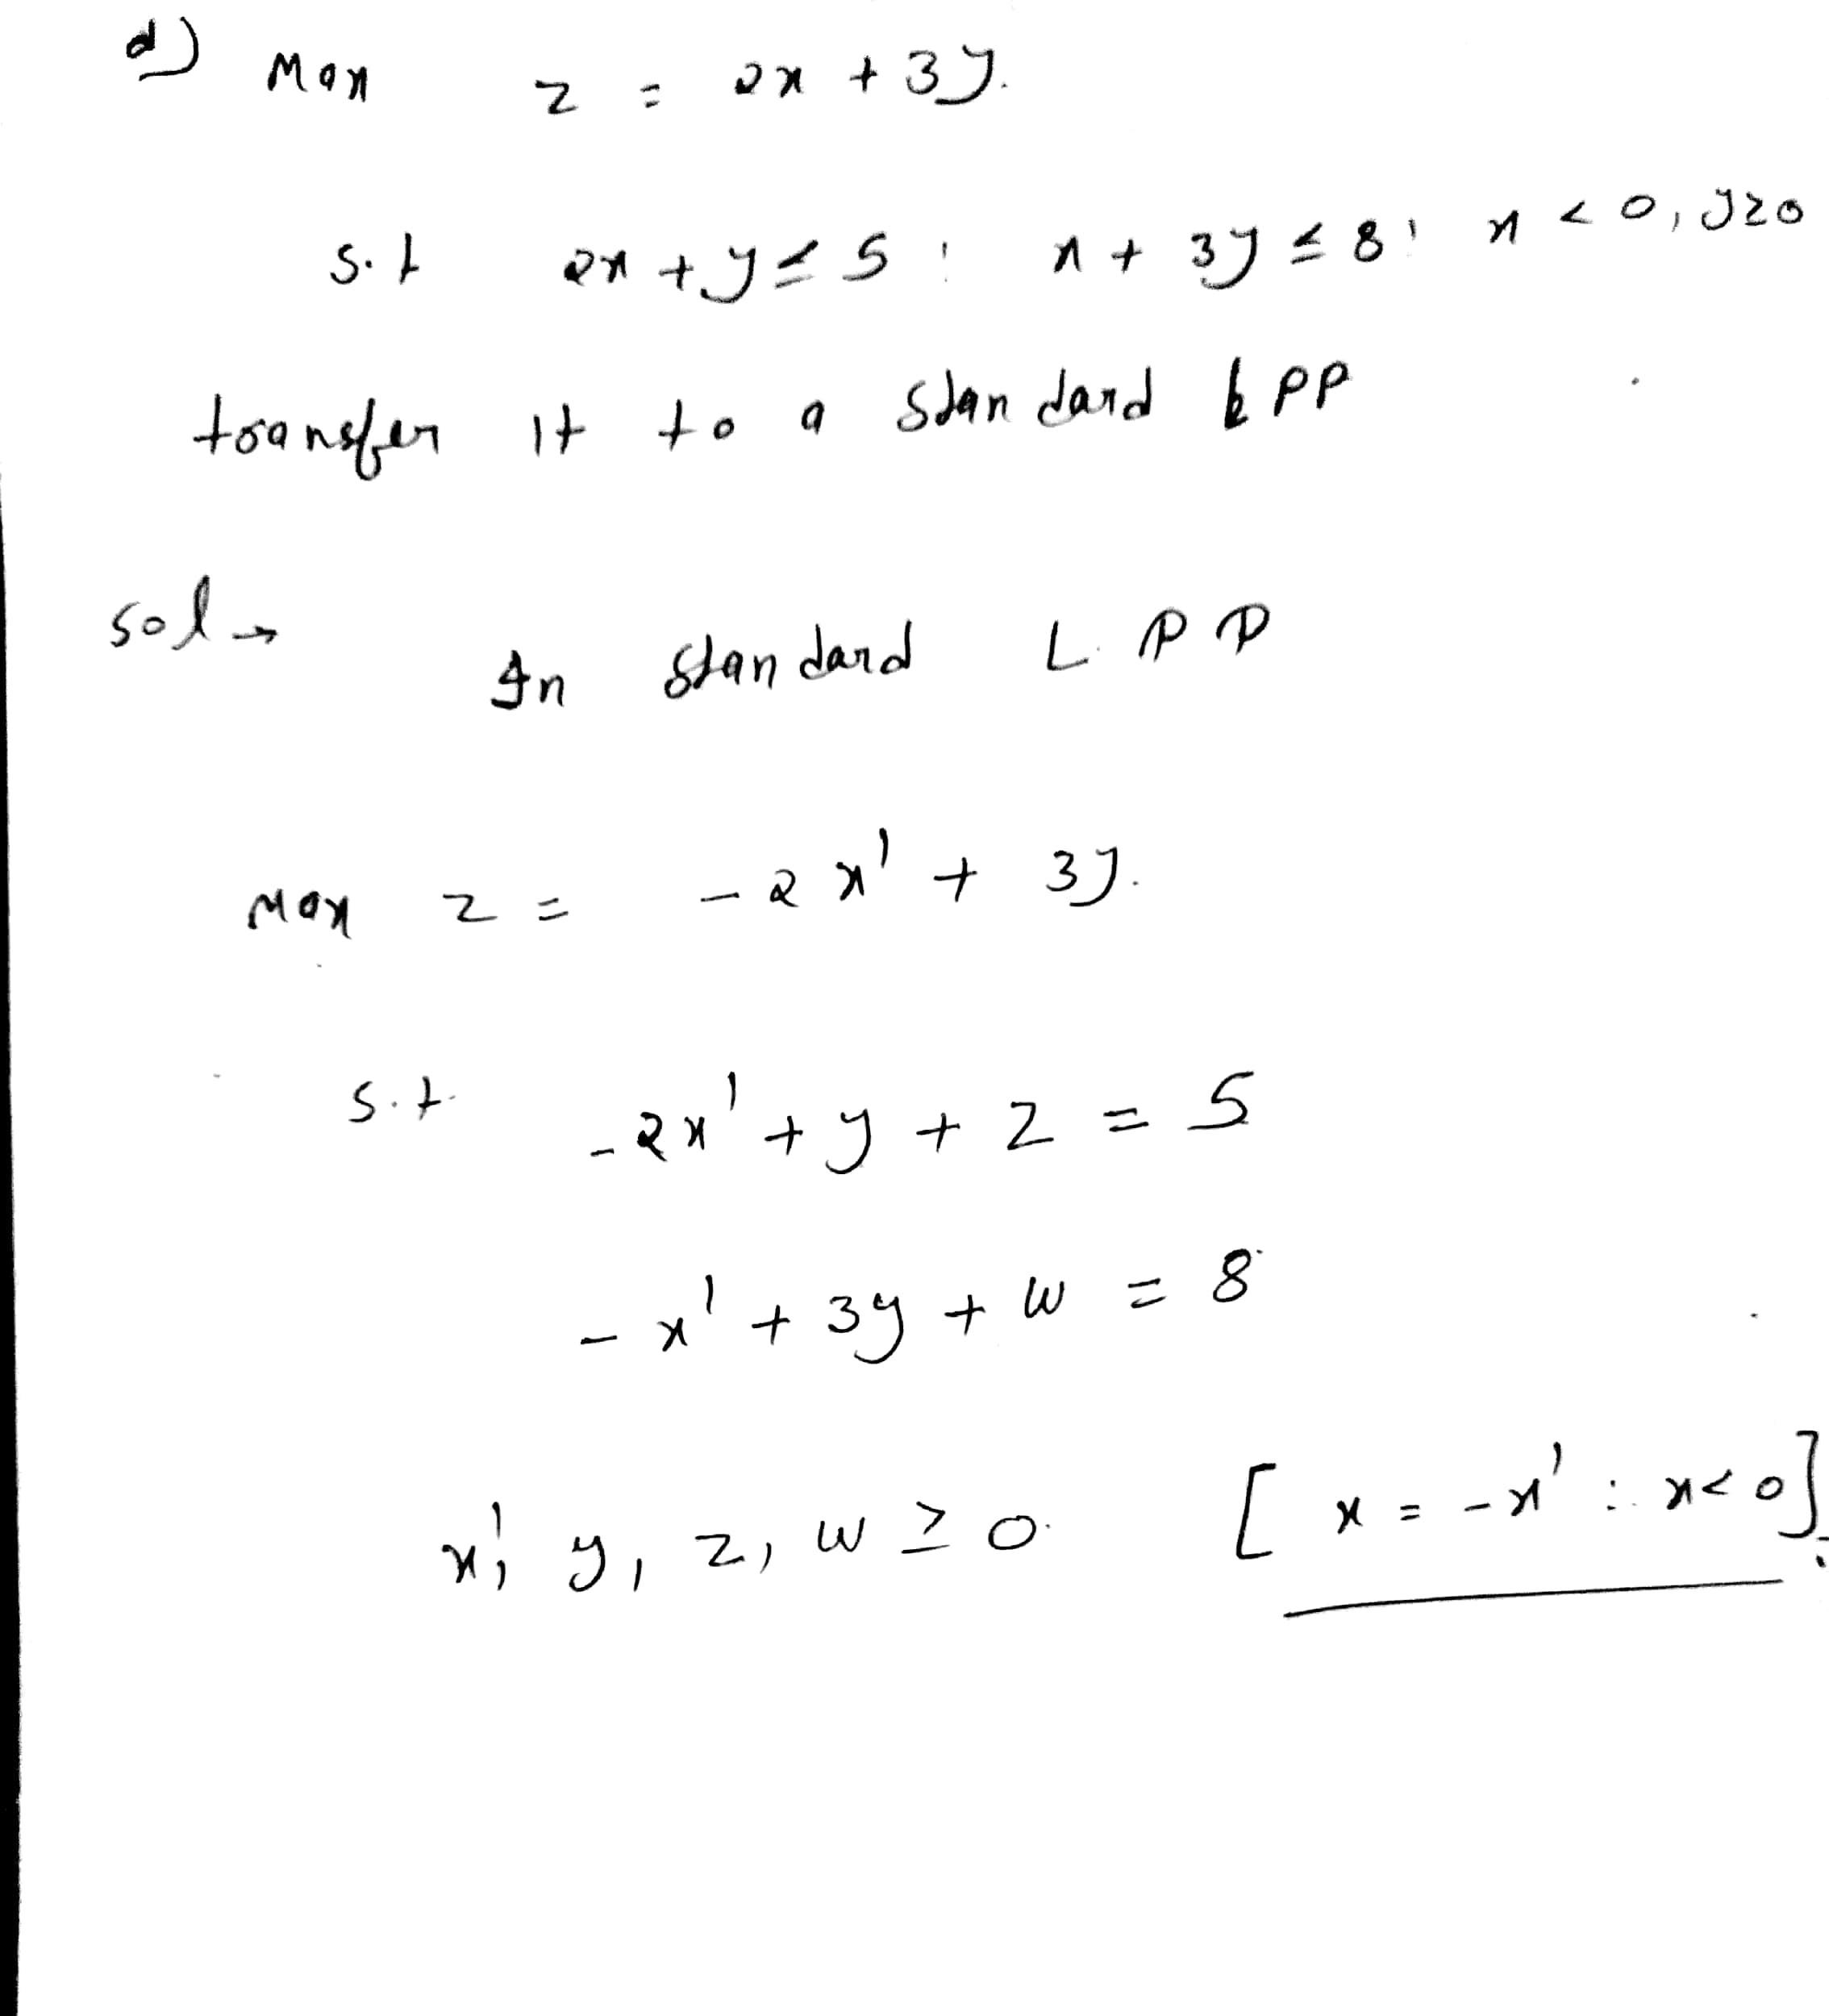 d) Max z = 2x + 3y.
s.t 2x + y ≤ 5 ; x + 3y ≤ 8, x < 0, y ≥ 0
transfer it to a standard LPP
sol →
In standard L.P.P
Max z = -2x' + 3y.
s.t. -2x' + y + z = 5
-x' + 3y + w = 8
x', y, z, w ≥ 0. [x = -x' ∵ x < 0].